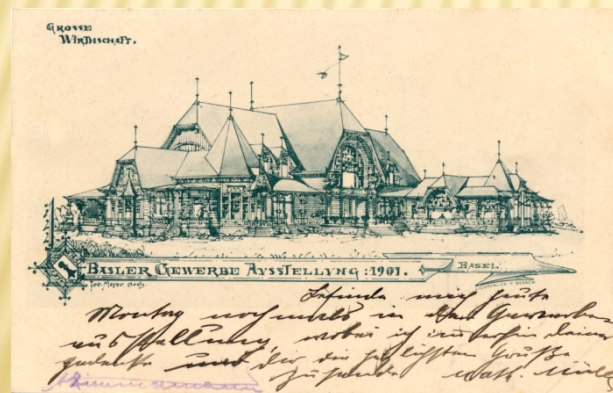 GROSSE
WIRTHSCHAFT.
BASLER GEWERBE AUSSTELLUNG : 1901.
BASEL.
Jos. Meyer. Arch.
Befinde mich heute
Montag nochmals in der Gewerbe
ausstellung, wobei ich immerhin deiner
gedenke und dir die herzlichsten Grüsse
zu sende